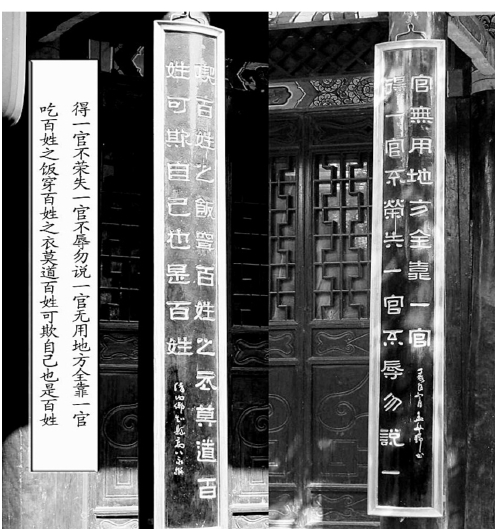 得一官不荣失一官不辱勿说一官无用地方全靠一官
吃百姓之饭穿百姓之衣莫道百姓可欺自己也是百姓
得一官不榮失一官不辱勿說一
官無用地方全靠一官
喫百姓之飯穿百姓之衣莫道百
姓可欺自己也是百姓